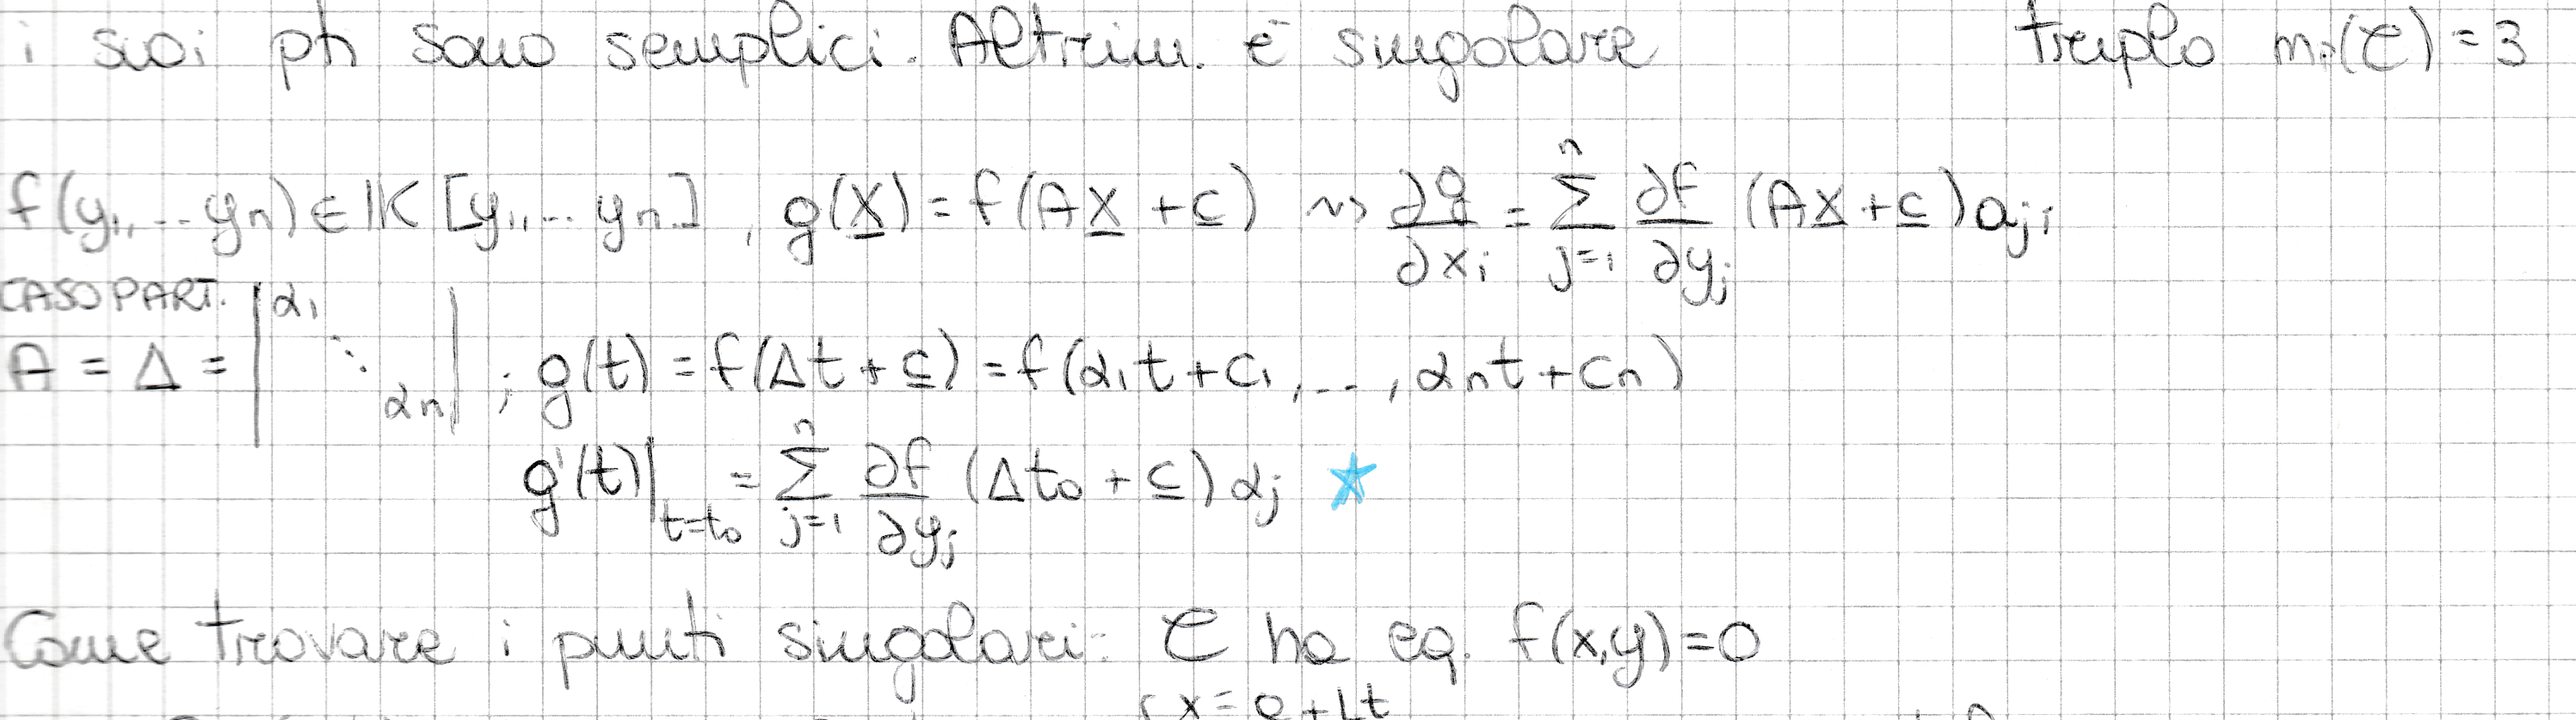 i suoi pti sono semplici. Altrim. è singolare triplo m_P(C)=3
f(y₁,...yₙ)∈K[y₁,...yₙ], g(X)=f(AX+c) ⇝ ∂g/∂xᵢ = Σⱼ₌₁ⁿ ∂f/∂yⱼ (AX+c)aⱼᵢ
CASO PART.
A = Δ = |α₁ ⋱ αₙ| ; g(t)=f(Δt+c)=f(α₁t+c₁,...,αₙt+cₙ)
g'(t)|ₜ₌ₜ₀ = Σⱼ₌₁ⁿ ∂f/∂yⱼ (Δt₀+c)αⱼ ★
Come trovare i punti singolari: C ha eq. f(x,y)=0